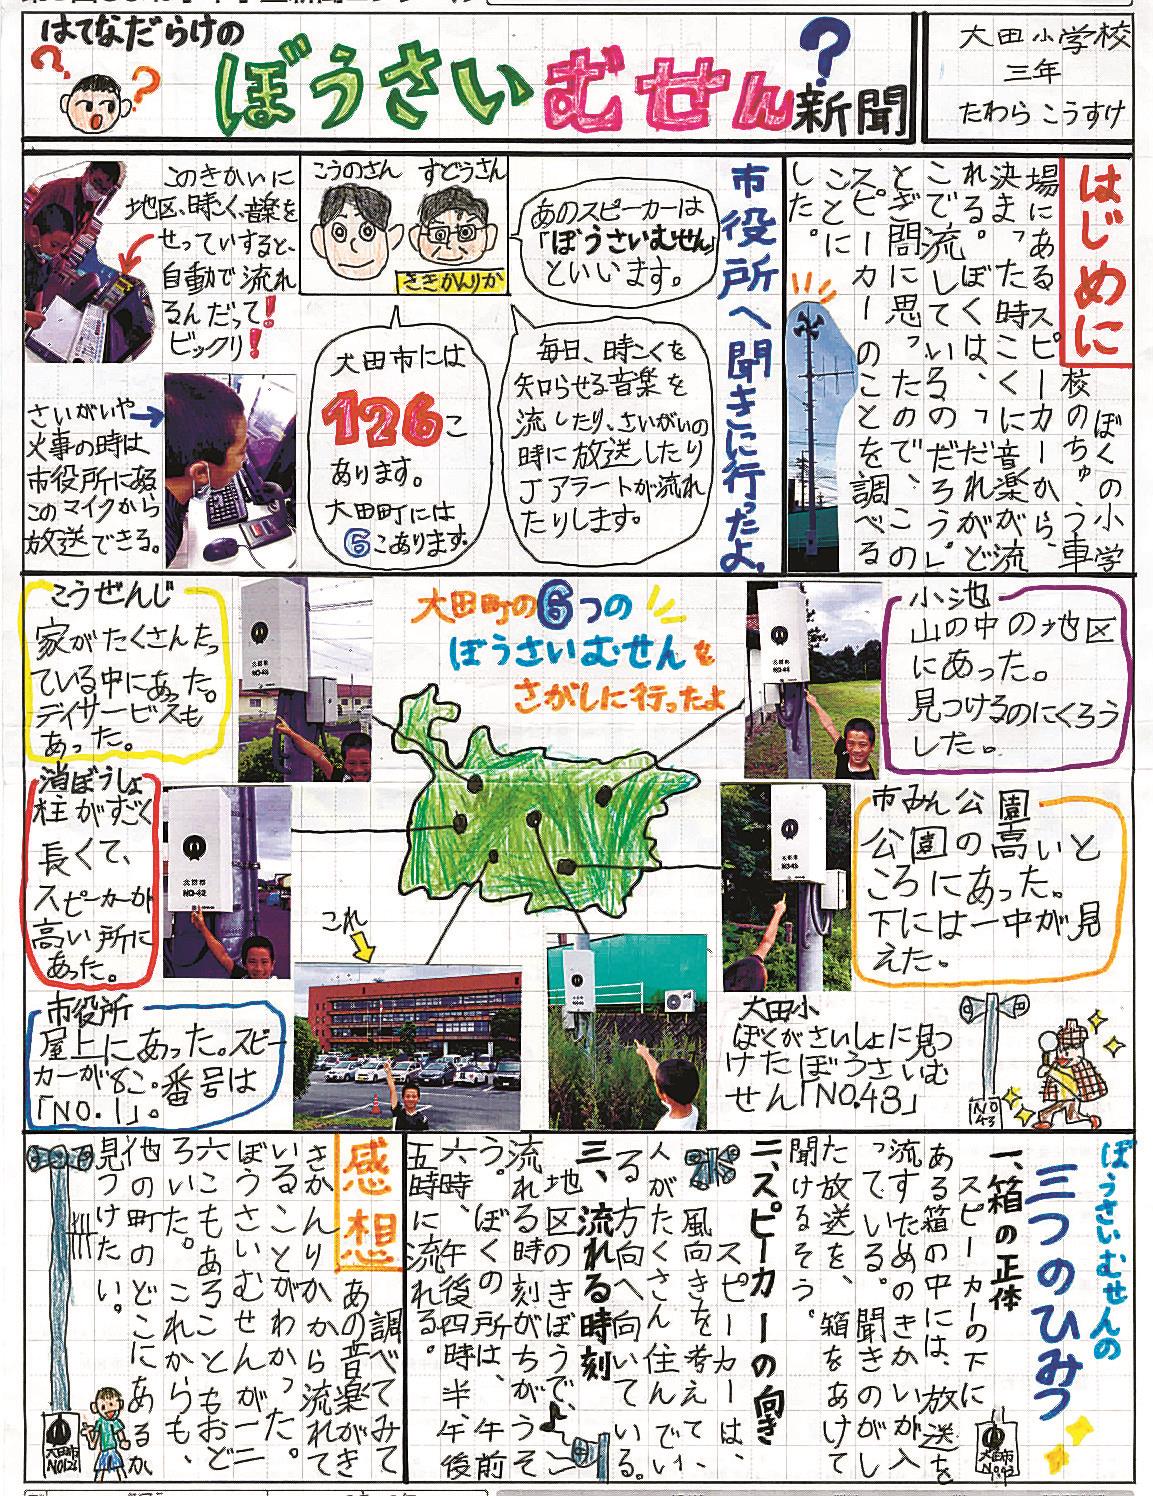 はてなだらけの
ぼうさいむせん新聞
大田小学校
三年
たわら こうすけ
はじめに
ぼくの小学
校のちゅう車
場にあるスピーカーから、
決まった時こくに音楽が流
れる。ぼくは、「だれがど
こで流しているのだろう。」
とぎ問に思ったので、この
スピーカーのことを調べる
ことに
した。
市役所へ聞きに行ったよ。
こうのさん すどうさん
ききかんりか
あのスピーカーは
「ぼうさいむせん」
といいます。
毎日、時こくを
知らせる音楽を
流したり、さいがいの
時に放送したり
Jアラートが流れ
たりします。
大田市には
126こ
あります。
大田町には
6こあります。
このきかいに
地区、時こく、音楽を
せっていすると、
自動で流れ
るんだって!
ビックリ!
さいがいや
火事の時は
市役所にある
このマイクから
放送できる。
大田町の6つの
ぼうさいむせんを
さがしに行ったよ
こうぜんじ
家がたくさんたっ
ている中にあった。
デイサービスも
あった。
小池
山の中の地区
にあった。
見つけるのにくろう
した。
消ぼうしょ
柱がすごく
長くて、
スピーカーが
高い所に
あった。
大田市
NO-42
市みん公園
公園の高いと
ころにあった。
下には一中が見
えた。
市役所
屋上にあった。スピー
カーが8こ。番号は
「NO.1」。
これ
大田小
ぼくがさいしょに見つ
けたぼうさいむ
せん「NO.43」
NO
43
ぼうさいむせんの
三つのひみつ
一、箱の正体
スピーカーの下に
ある箱の中には、放送を
流すためのきかいが入
っている。聞きのがし
た放送を、箱をあけて
聞けるそう。
大田市
NO.43
二、スピーカーの向き
スピーカーは、
風向きを考えて、
人がたくさん住んでい
る方向へ向いている。
三、流れる時刻
地区のきぼうで、
流れる時刻がちがうそ
う。ぼくの所は、午前
六時、午後四時半、午後
五時に流れる。
感想
調べてみて
あの音楽がき
きかんりかから流れて
いることがわかった。
ぼうさいむせんが一二
六こもあることもおど
ろいた。これからも、
他の町のどこにあるか
見つけたい。
大田市
NO126